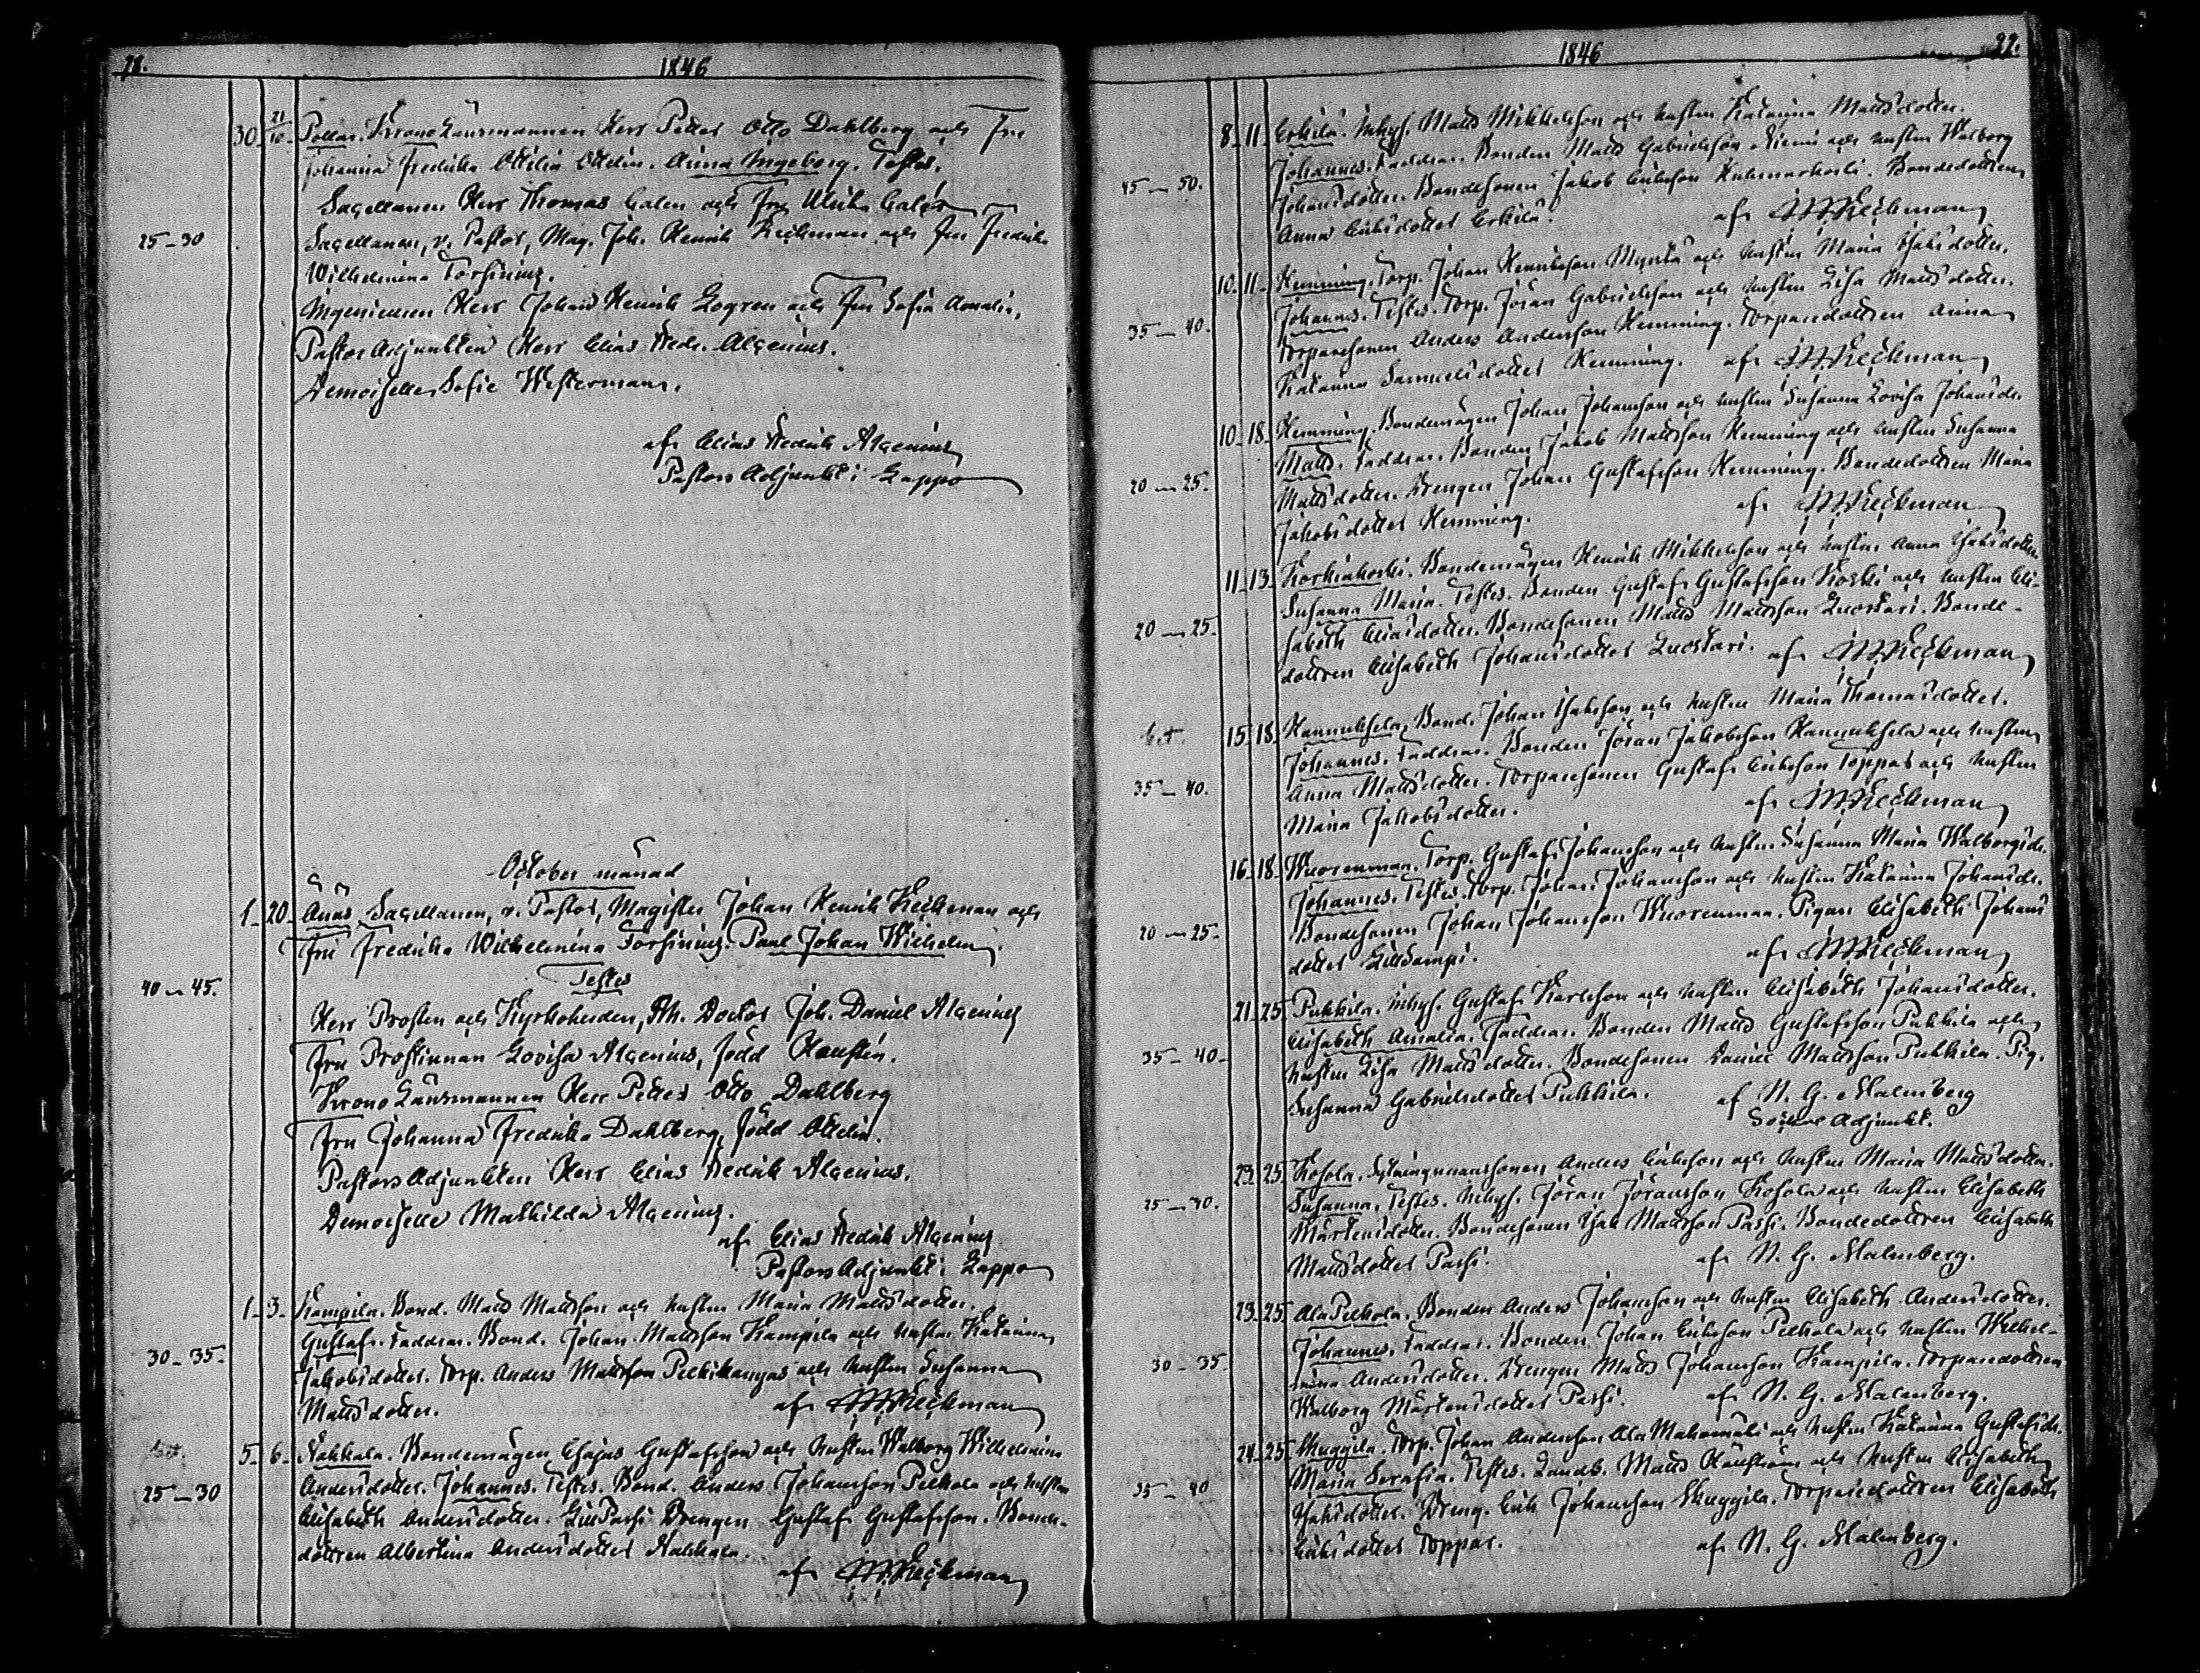 71.
1846
30 21/10 Pollar. Krono Länsmannen Herr Petter Otto Dahlberg och Fru
Johanna Fredrika Ottilia Ottelin. Anna Ingeborg. Testes.
Sacellanen Herr Thomas Calen och Fru Ulrika
25-30
Sacellanen, v. Pastor, Mag. Joh. Henrik Keckman och Fru Fredrika
Wilhelmina Forsinius.
Ingenieuren Herr Johan Henrik Logren och Fru Sofia Amalia,
Pastors Adjunkten Herr Elias Fredr. Alcenius.
Demoiselle Sofie Westerman.
af Elias Fredrik Alcenius
Pastors Adjunkt i Lappo
October månad
1 20 Ånäs Sacellanen, v. Pastor, Magister Johan Henrik Keckman och
Fru Fredrika Wilhelmina Forsinius. Paul Johan Wilhelm.
Testes
40-45.
Herr Prosten och Kyrkoherden, Th. Doctor Joh. Daniel Alcenius
Fru Prostinnan Lovisa Alcenius, född
Krono Länsmannen Herr Petter Otto Dahlberg
Fru Johanna Fredrika Dahlberg, född Ottelin.
Pastors Adjunkten Herr Elias Fredrik Alcenius.
Demoiselle Mathilda Alcenius.
af Elias Fredrik Alcenius
Pastors Adjunkt i Lappo
1 3 Kampila. Bond. Matts Mattsson och hustru Maria Mattsdotter.
Gustaf. Faddrar. Bond. Johan Mattsson Kampila och hustru Katarina
30-35.
Jakobsdotter. Torp. Anders Mattsson Pelkikangas och hustru Susanna
Mattsdotter. af JHKeckman
5 6 Nahkala. Bondemågen Esajas Gustafsson och hustru Walborg Wilhelmina
25-30
Andersdotter. Johannes. Testes. Bond. Anders Johansson Pelkola och hustru
Elisabeth Andersdotter. Drengen Gustaf Gustafsson. Bonde-
dottren Albertina Andersdotter Nahkala.
af JHKeckman
1846
8 11 Erkilä. Inhys. Matts Mikkelsson och hustru Katarina Mattsdotter.
Johannes. Faddrar. Bonden Matts Gabrielsson Niemi och hustru Walborg
45-50.
Johansdotter. Bondesonen Jakob Eriksson . Bondedottren
Anna Eriksdotter Erkilä. af JHKeckman
10 11 Hemming. Torp. Johan Henriksson och hustru Maria Isaksdotter.
Johannes. Testes. Torp. Jöran Gabrielsson och hustru Lisa Mattsdotter.
35-40.
Torparesonen Anders Andersson Hemming. Torparedottren Anna
Katarina Samuelsdotter Hemming. af JHKeckman
10 18 Hemming. Bondemågen Johan Johansson och hustru Susanna Lovisa Johansdr.
Matts. Faddrar. Bonden Jakob Mattsson Hemming och hustru Susanna
20-25.
Mattsdotter. Drengen Johan Gustafsson Hemming. Bondedottren Maria
Jakobsdotter Hemming. af JHKeckman
11 13 Korkiakoski. Bondemågen Henrik Mikkelsson och hustru Anna Isaksdotter.
Susanna Maria. Testes. Bonden Gustaf Gustafsson Koski och hustru Eli-
20-25.
sabeth Eliasdotter. Bondesonen Matts Mattsson Luostari. Bonde-
dottren Elisabeth Johansdotter Luostari. af JHKeckman
15 18 Hannuksela. Bond. Johan Isaksson och hustru Maria Thomasdotter.
Johannes. Faddrar. Bonden Jöran Jakobsson Hannuksela och hustru
35-40.
Anna Mattsdotter. Torparesonen Gustaf Eriksson Toppar och hustru
Maria Jakobsdotter. af JHKeckman
16 18 Wuorenmaa. Torp. Gustaf Johansson och hustru Susanna Maria Walborgsdr.
Johannes. Testes. Torp. Johan Johansson och hustru Katarina Johansdr.
20-25.
Bondesonen Johan Johansson Wuorenmaa. Pigan Elisabeth Johans
dotter . af JHKeckman
21 25 Puhkila. Inhys. Gustaf Karlsson och hustru Elisabeth Johansdotter.
Elisabeth Amalia. Faddrar. Bonden Matts Gustafsson Puhkila och
35-40
hustru Lisa Mattsdotter. Bondesonen Daniel Mattsson Puhkila. Pig.
Susanna Gabrielsdotter Puhkila. af N. G. Malmberg
Sockne Adjunkt.
23 25 Kosola. Sytningsmanssonen Anders Eriksson och hustru Maria Mattsdotter.
Susanna. Testes. Inhys. Jöran Jöransson Kosola och hustru Elisabeth
25-30.
Mårtensdotter. Bondesonen Isak Mattsson Passi. Bondedottren Elisabeth
Mattsdotter Passi. af N. G. Malmberg.
23 25 Ala Pelkola. Bonden Anders Johansson och hustru Elisabeth Andersdotter.
Johannes. Faddrar. Bonden Johan Eriksson Pelkola och hustru Wilhel-
30-35.
mina Andersdotter. Drengen Matts Johansson Kampila. Torparedottren
Walborg Mårtensdotter Passi. af N. G. Malmberg.
24 25 Skuggila. Torp. Johan Andersson Ala Mahomäki och hustru Katarina Gustafsdr.
Maria Serafia. Testes. Landb. Matts och hustru Elisabeth
35-40
Isaksdotter. Dreng. Erik Johansson Skuggila. Torparedottren Elisabeth
Eriksdotter Toppar. af N. G. Malmberg.